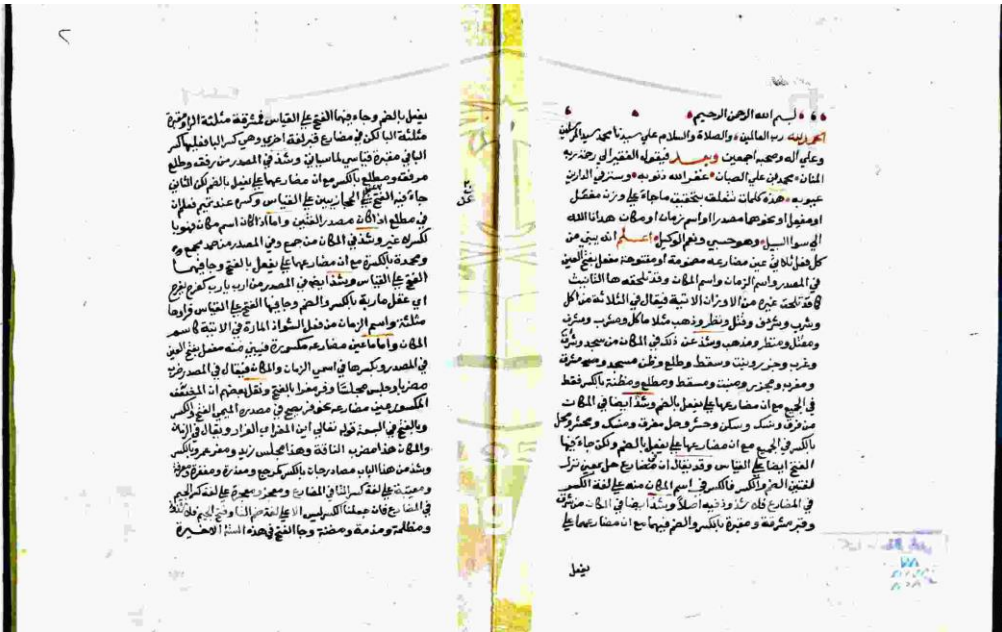 بسم الله الرحمن الرحيم
الحمد لله رب العالمين والصلاة والسلام علي سيدنا محمد سيد المرسلين
وعلي آله وصحبه اجمعين وبعد فيقول الفقير الي رحمة ربه
المنان محمد بن علي الصبان غفر الله ذنوبه وستر في الدارين
عيوبه هذه كلمات تتعلق بتحقيق ما جاء علي وزن مفعل
او مفعل او نحوهما مصدرا او اسم زمان او مكان هدانا الله
الي سوا السبيل وهو حسبي ونعم الوكيل اعلم انه يبني من
كل فعل ثلاثي عين مضارعه مضمومة او مفتوحة مفعل بفتح العين
في المصدر واسم الزمان واسم المكان وقد تلحقه ها التانيث
كما قد تلحق غيره من الاوزان الاتية فيقال في الثلاثة من اكل
وشرب وشرف وقتل ونظر وذهب مثلا ماكل ومشرب ومشرف
ومقتل ومنظر ومذهب وشذ عن ذلك في المكان من سجد وشرق
وغرب وجزر ونبت وسقط وطلع وظن مسجد ومشرق
ومغرب ومجزر ومنبت ومسقط ومطلع ومظنة بالكسر فقط
في الجميع مع ان مضارعها علي يفعل بالضم وشذ ايضا في المكان
من فرق ونسك وسكن وحشر وحل مفرق ومنسك ومحشر ومحل
بالكسر في الجميع مع ان مضارعها علي يفعل بالضم ولكن جاء فيها
الفتح ايضا علي القياس وقد يقال ان في مضارع حل بمعني نزل
لغتين الضم والكسر فالكسر في اسم المكان منه علي لغة الكسر
في المضارع فلا شذوذ فيه اصلا وشذ ايضا في المكان من شرق
وقبر مشرقة ومقبرة بالكسر والضم فيهما مع ان مضارعهما علي
يفعل
يفعل بالضم وجاء فيهما الفتح علي القياس فمشرقة مثلثة الرا ومقبرة
مثلثة البا لكن في مضارع قبر لغة اخري وهي كسر البا فعليها كسر
البا في مقبرة قياسي لما سياتي وشذ في المصدر من رفق وطلع
مرفق ومطلع بالكسر مع ان مضارعهما علي يفعل بالضم لكن الثاني
جاء فيه الفتح عند الحجازيين علي القياس وكسره عند تميم فعلم ان
في مطلع اذا كان مصدرا لغتين واما اذا كان اسم مكان فنوبا
لكسر لا غير وشذ في المكان من جمع وفي المصدر من حمد مجمع
ومحمدة بالكسر مع ان مضارعهما علي يفعل بالفتح وجا فيهما
الفتح علي القياس وشذ ايضا في المصدر من ارب يارب كفرح يفرح
اي عقل ماربة بالكسر والضم وجا فيها الفتح علي القياس فراوها
مثلثة واسم الزمان من فعل الشواذ المارة في الابنية كاسم
المكان واما ما عين مضارعه مكسورة فيبني منه مفعل بفتح العين
في المصدر وبكسرها في اسمي الزمان والمكان فيقال في المصدر ضرب
مضربا وجلس مجلسا وفر مفرا بالفتح ونقل بعضهم ان المضعف
المكسور عين مضارعه نحو فر يصح في مصدره الميمي الفتح والكسر
وبالفتح في السبعة قوله تعالي اين المفر اي الفرار ويقال في الزمان
والمكان هذا مضرب الناقة وهذا مجلس زيد ومفر عمرو بالكسر
وشذ من هذا الباب مصادر جات بالكسر كمرجع ومعذرة ومغفرة ومعرفة